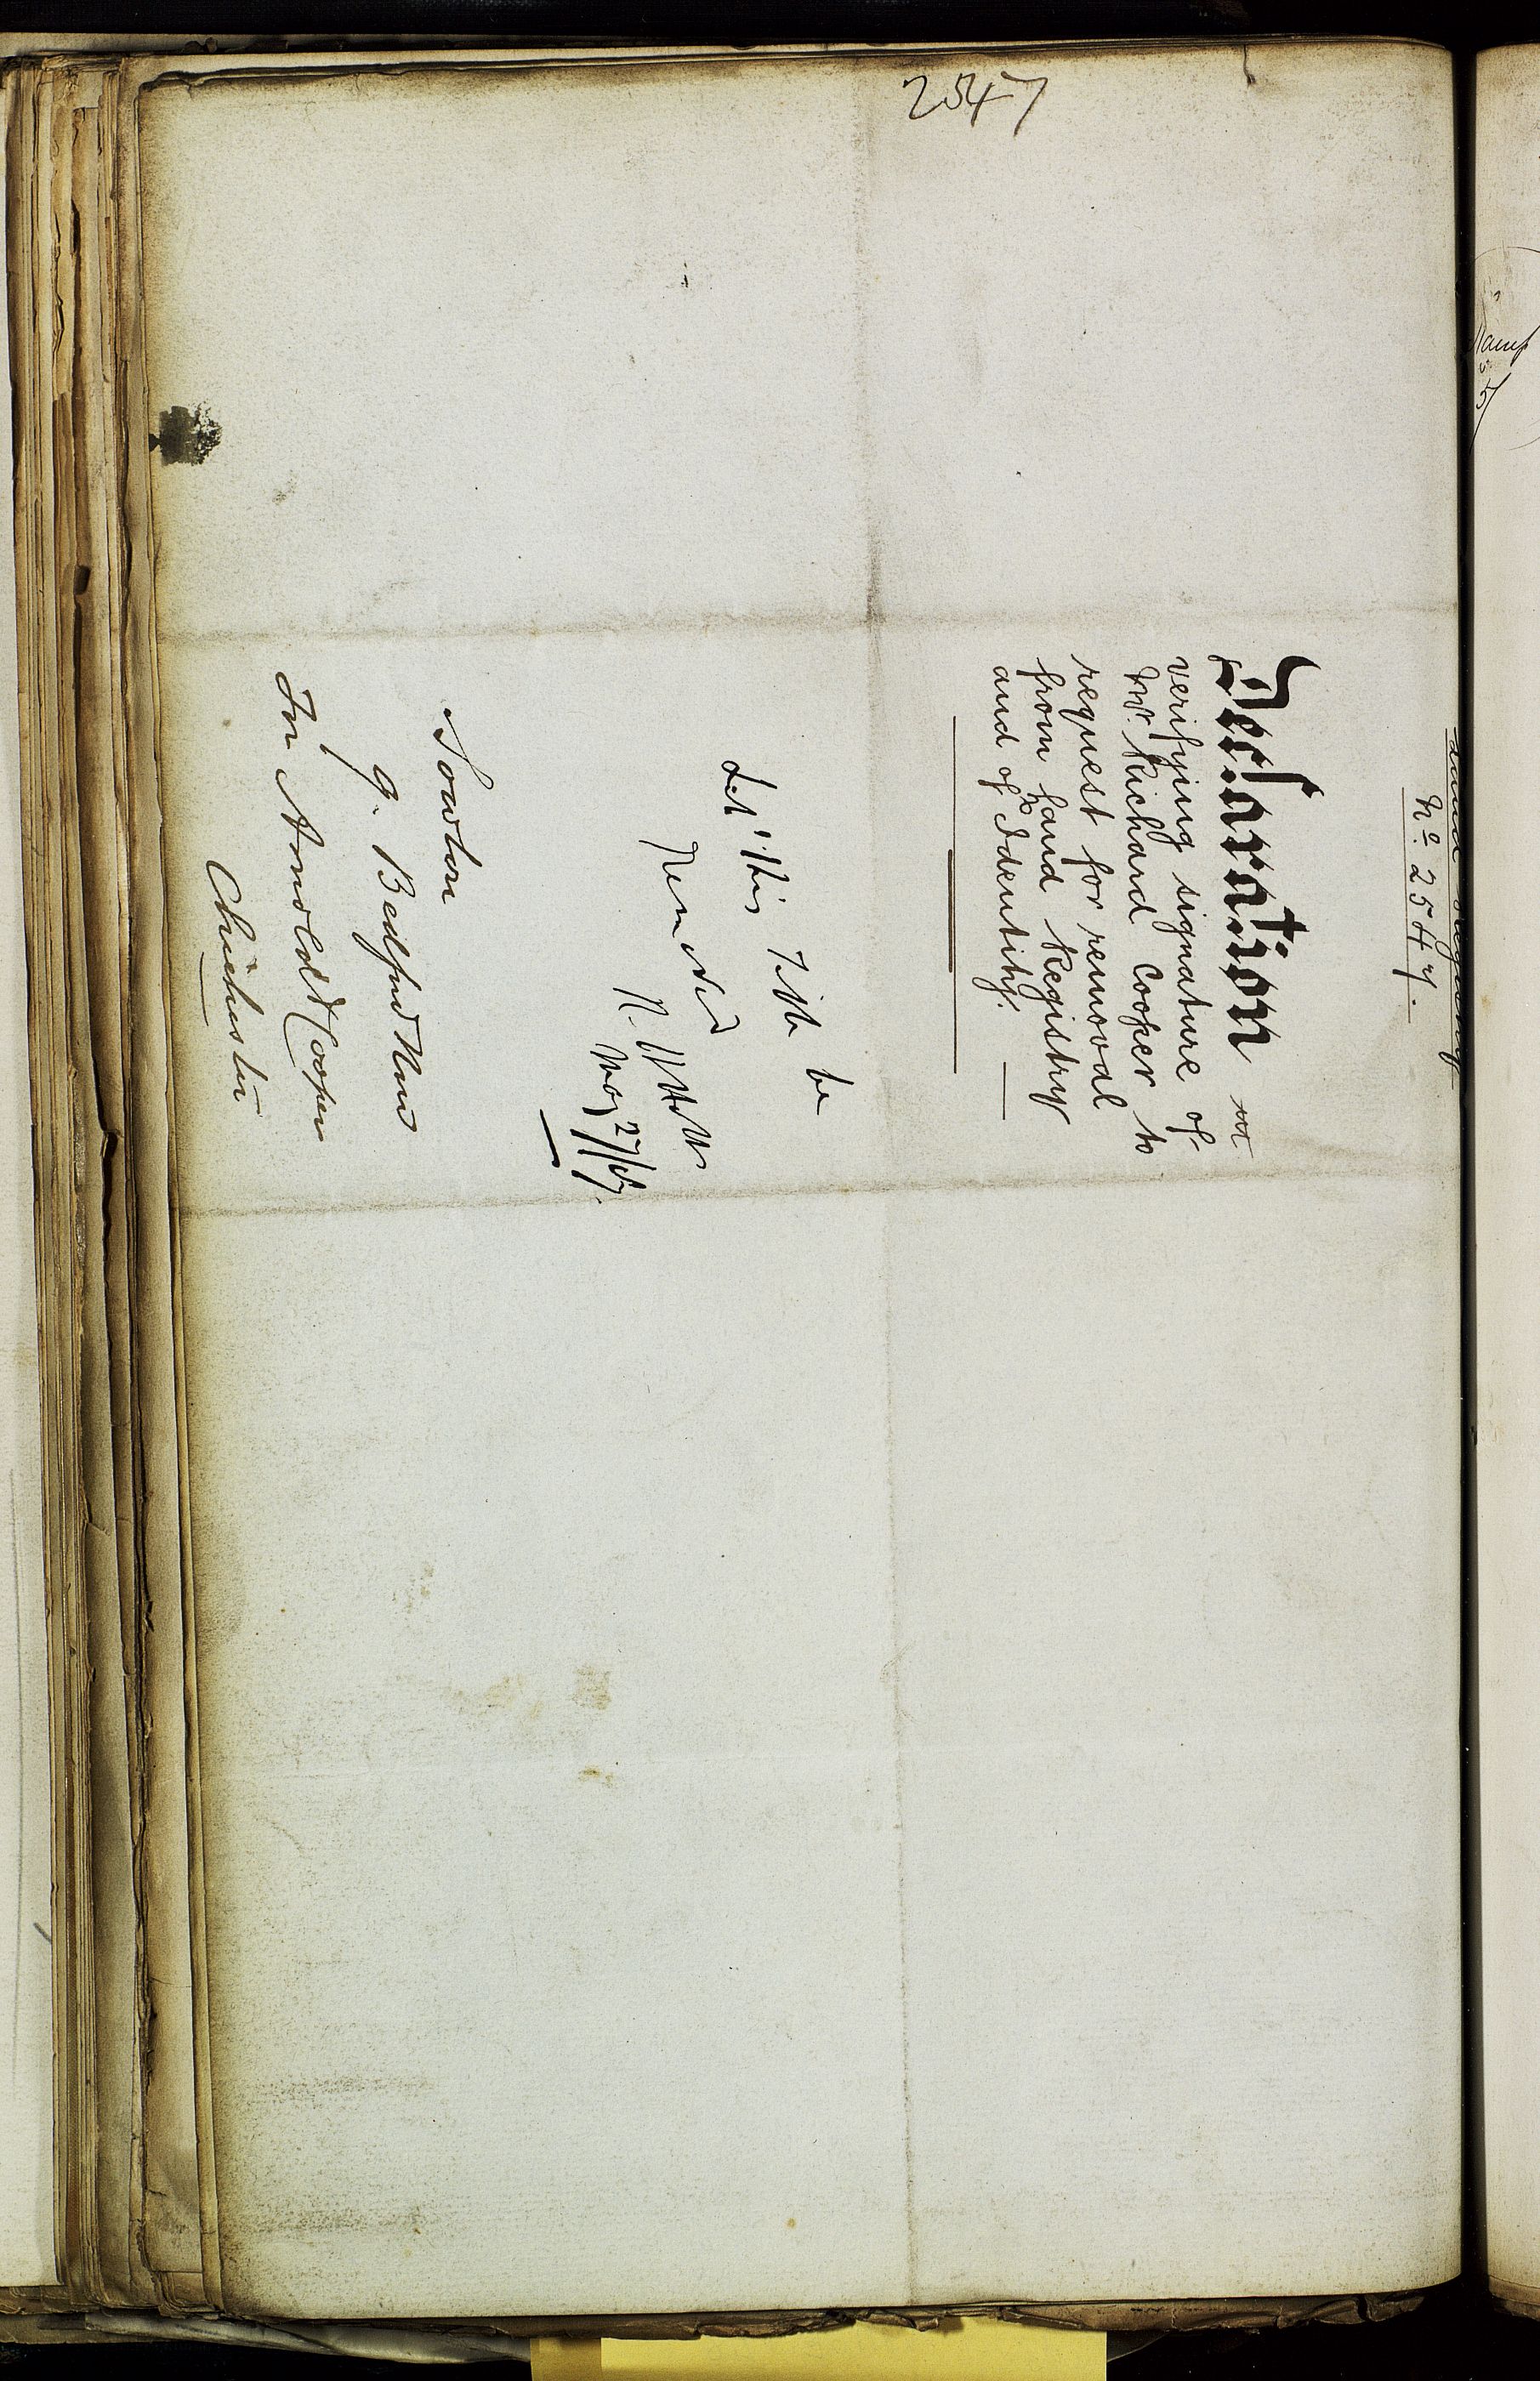 2547
Land Registry
No. 2547.
Declaration
verifying signature of
Mr. Richard Cooper to
request for removal
from Land Registry
and of Identity.
Let this Title be
Removed
May 27/
Sowton
9. Bedford Row
For Arnold & Cooper
Chichester